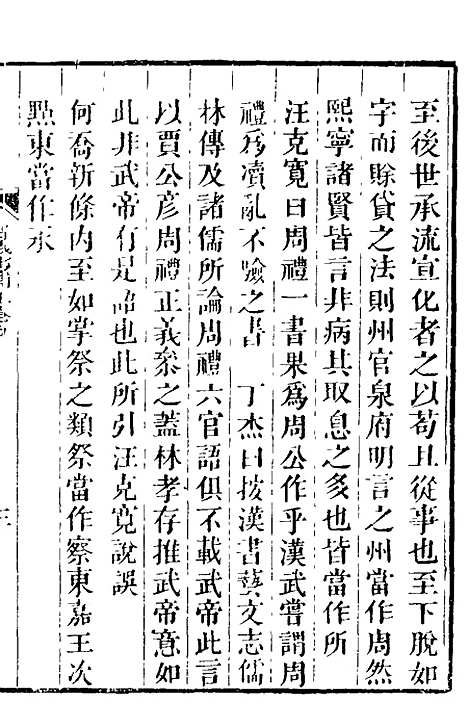 至後世承流宣化者之以苟且從事也至下脫如
字而賖貸之法則州官泉府明言之州當作周然
熙寧諸賢皆言非病其取息之多也皆當作所
汪克寬曰周禮一書果爲周公作乎漢武嘗謂周
禮爲瀆亂不驗之書　丁杰曰按漢書藝文志儒
林傳及諸儒所論周禮六官語俱不載武帝此言
以賈公彥周禮正義叅之蓋林孝存推武帝意如
此非武帝有是語也此所引汪克寬說誤
何喬新條內至如掌祭之類祭當作察東嘉王次
點東當作永
三